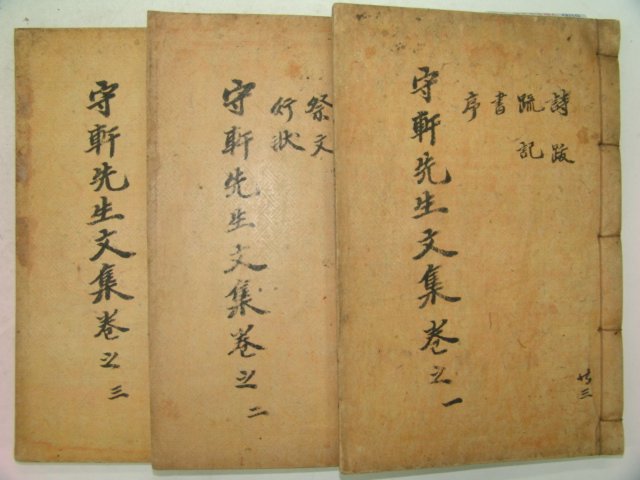 詩跋
疏記
書
序
守軒先生文集卷之一
共三
祭文
行狀
守軒先生文集卷之二
守軒先生文集卷之三